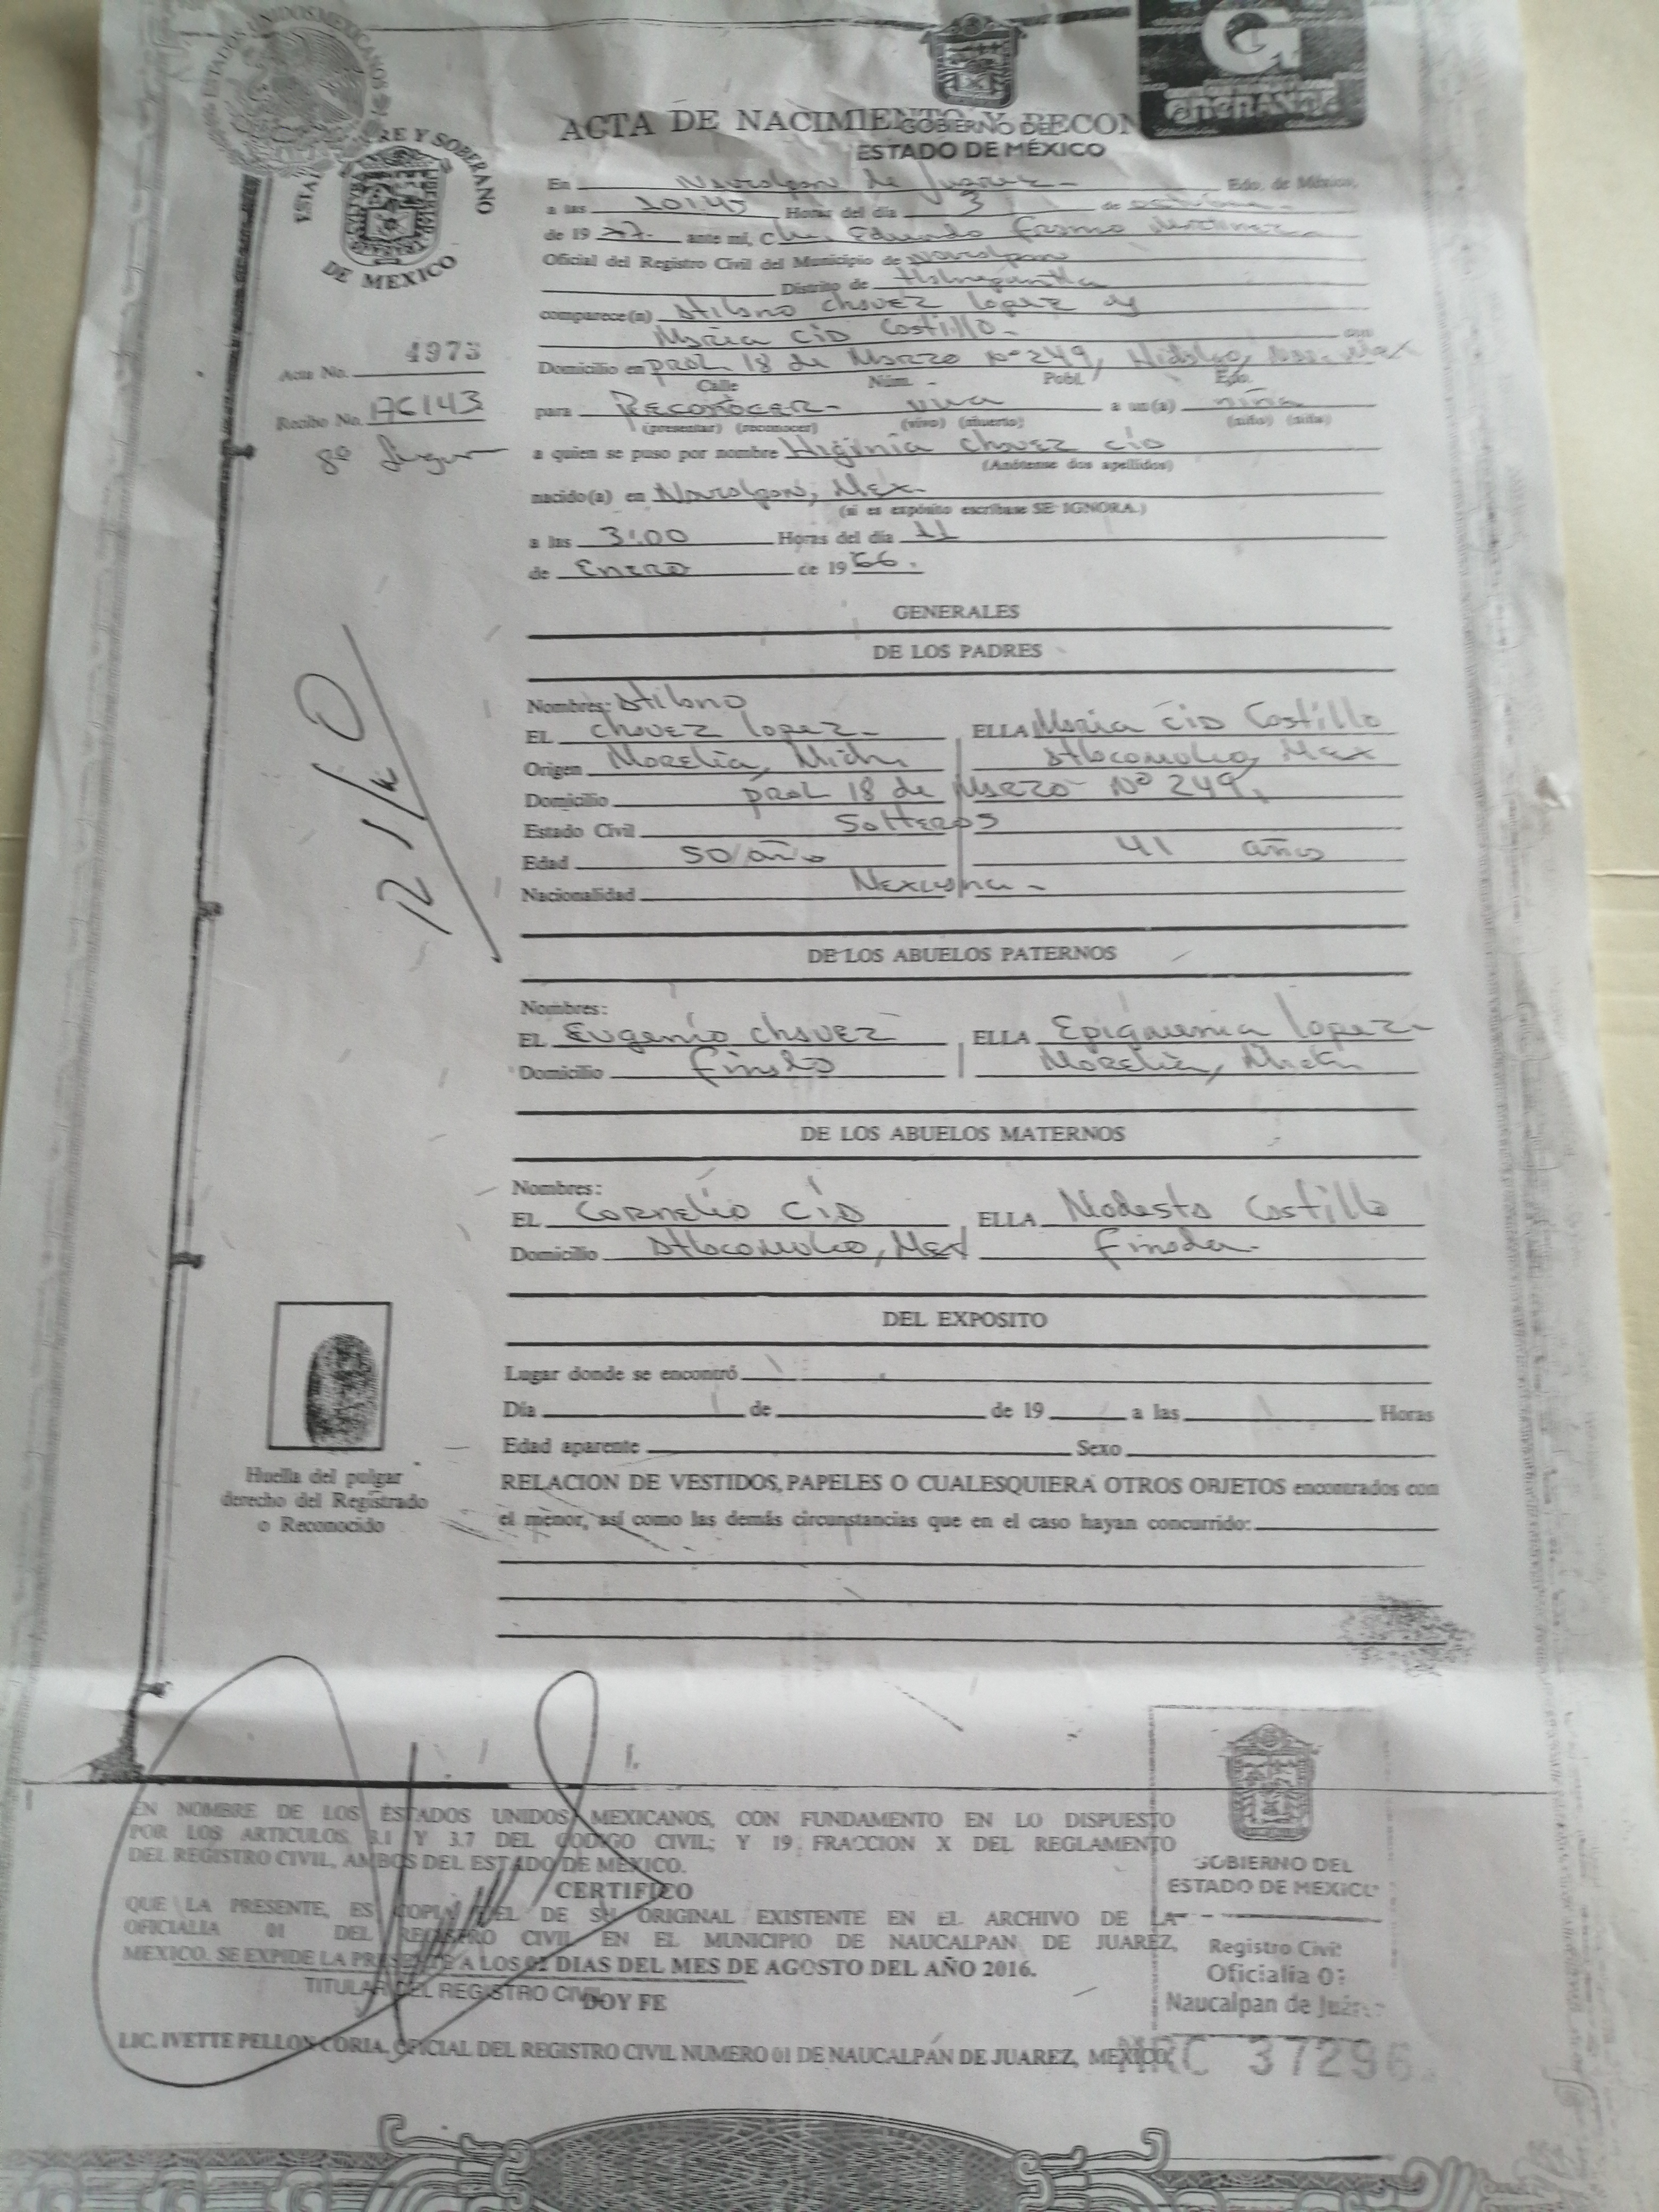 ESTADOS UNIDOS MEXICANOS
RE Y SOBERANO
DE MEXICO
G
ACTA DE NACIMIENTO Y RECON
GOBIERNO DEL
ESTADO DE MÉXICO
En Naucalpan de Juarez - Edo. de México,
a las 10:45 Horas del día 3 de
de 19 77. ante mí, C. Eduardo
Oficial del Registro Civil del Municipio de Naucalpan
Distrito de Tlalnepantla
comparece(n) Atilano Chavez Lopez y
Maria Cid Castillo.- con
Acta No. 4973
Domicilio en prol 18 de Marzo Nº 249, Hidalgo, Nau. Mex
Calle Núm. Pobl. Edo.
Recibo No. 176143
para Reconocer- viva a un(a) niña
(presentar) (reconocer) (vivo) (muerto) (niño) (niña)
8º Lugar
a quien se puso por nombre Higinia Chavez Cid
(Anótense dos apellidos)
nacido(a) en Naucalpan, Mex.
(si es expósito escríbase SE IGNORA.)
a las 3:00 Horas del día 11
de Enero de 1966.
GENERALES
DE LOS PADRES
Nombres: Atilano
EL Chavez Lopez- ELLA Maria Cid Castillo
Origen Morelia, Mich. Atlacomulco, Mex
Domicilio prol 18 de Marzo Nº 249,
Estado Civil Solteros
Edad 50 años 41 años
Nacionalidad Mexicana-
DE LOS ABUELOS PATERNOS
Nombres:
EL Eugenio Chavez ELLA Epigmenia Lopez-
Domicilio Finado Morelia, Mich
DE LOS ABUELOS MATERNOS
Nombres:
EL Cornelio Cid ELLA Modesta Castillo
Domicilio Atlacomulco, Mex Finada-
DEL EXPOSITO
Lugar donde se encontró
Día de de 19 a las Horas
Edad aparente Sexo
Huella del pulgar
derecho del Registrado
o Reconocido
RELACION DE VESTIDOS, PAPELES O CUALESQUIERA OTROS OBJETOS encontrados con
el menor, así como las demás circunstancias que en el caso hayan concurrido:
EN NOMBRE DE LOS ESTADOS UNIDOS MEXICANOS, CON FUNDAMENTO EN LO DISPUESTO
POR LOS ARTICULOS 3.1 Y 3.7 DEL CODIGO CIVIL; Y 19 FRACCION X DEL REGLAMENTO
DEL REGISTRO CIVIL, AMBOS DEL ESTADO DE MEXICO.
CERTIFICO
QUE LA PRESENTE, ES COPIA FIEL DE SU ORIGINAL EXISTENTE EN EL ARCHIVO DE LA
OFICIALIA 01 DEL REGISTRO CIVIL EN EL MUNICIPIO DE NAUCALPAN DE JUAREZ,
MEXICO. SE EXPIDE LA PRESENTE A LOS 02 DIAS DEL MES DE AGOSTO DEL AÑO 2016.
TITULAR DEL REGISTRO CIVIL
DOY FE
LIC. IVETTE PELLON CORIA, OFICIAL DEL REGISTRO CIVIL NUMERO 01 DE NAUCALPÁN DE JUAREZ, MEXICO.
GOBIERNO DEL
ESTADO DE MEXICO
Registro Civil
Oficialia 01
Naucalpan de Juárez
NRC 37296